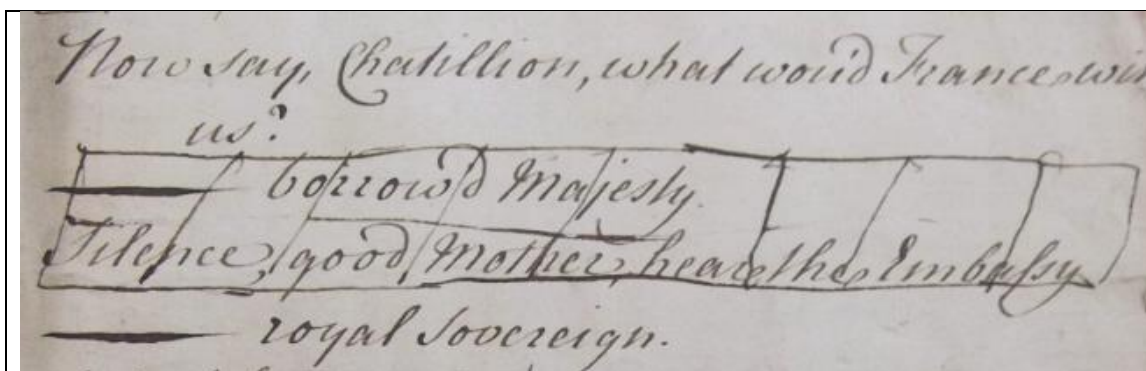 Now say, Chatillion, what wou'd France with
us?
borrow'd Majesty.
Silence, good Mother, hear the Embassy
royal Sovereign.